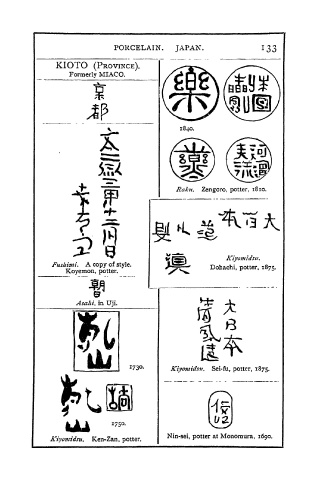 PORCELAIN. JAPAN. 133
KIOTO (PROVINCE).
Formerly MIACO.
京
都
Fushimi. A copy of style.
Koyemon, potter.
朝
日
Asahi, in Uji.
乾
山
1730.
乾
山
1750.
Kiyomidzu. Ken-Zan, potter.
樂
1840.
樂
Raku. Zengoro, potter, 1810.
大日本
道八
Kiyomidzu.
Dohachi, potter, 1875.
大日本
清風造
Kiyomidzu. Sei-fu, potter, 1875.
Nin-sei, potter at Monomura, 1690.